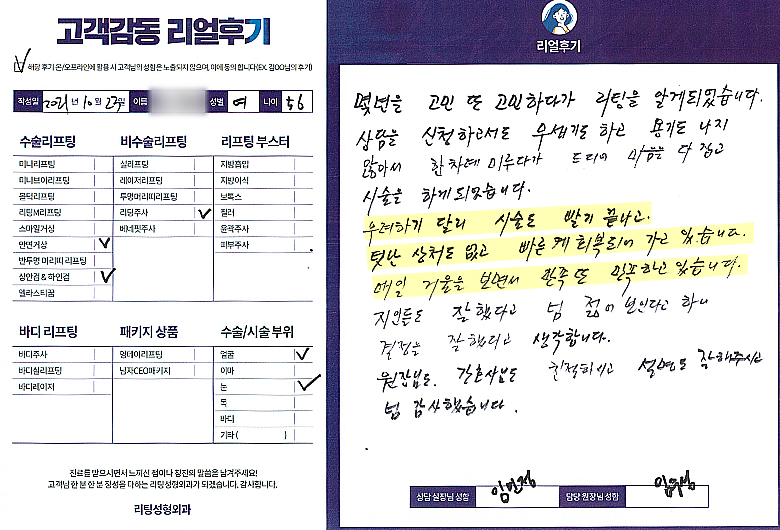 고객감동 리얼후기
해당 후기 온/오프라인에 활용 시 고객님의 성함은 노출되지 않으며, 이에 동의 합니다(EX. 김OO님의 후기)
작성일 2021년 10월 27일 이름 성별 여 나이 56
수술리프팅
미니리프팅
미니브이리프팅
윤탁리프팅
리팅M리프팅
스마일거상
안면거상
반투명 미리띠 리프팅
상안검 & 하안검
엘라스티꿈
비수술리프팅
실리프팅
레이저리프팅
투명머리띠리프팅
리팅주사
베네핏주사
리프팅 부스터
지방흡입
지방이식
보톡스
필러
윤곽주사
피부주사
바디 리프팅
바디주사
바디실리프팅
바디레이저
패키지 상품
영데이리프팅
남자CEO패키지
수술/시술 부위
얼굴
이마
눈
목
바디
기타 ( )
진료를 받으시면서 느끼신 점이나 칭찬의 말씀을 남겨주세요!
고객님 한 분 한 분 정성을 다하는 리팅성형외과가 되겠습니다. 감사합니다.
리팅성형외과
리얼후기
몇년을 고민 또 고민하다가 리팅을 알게되었습니다.
상담을 신청하고서도 무섭기도 하고 용기도 나지
않아서 한차례 미루다가 드디어 마음을 다 잡고
시술을 하게되었습니다.
우려하기 달리 시술도 빨리 끝나고.
덧난 상처도 없고 빠르게 회복되어 가고 있습니다.
매일 거울을 보면서 만족 또 만족하고 있습니다.
지인들도 잘했다고 넘 젊어 보인다고 하니
결정을 잘했다고 생각합니다.
원장님도. 간호사님도 친절하시고 설명도 잘해주시고
넘 감사했습니다.
상담 실장님 성함 임민정 담당 원장님 성함